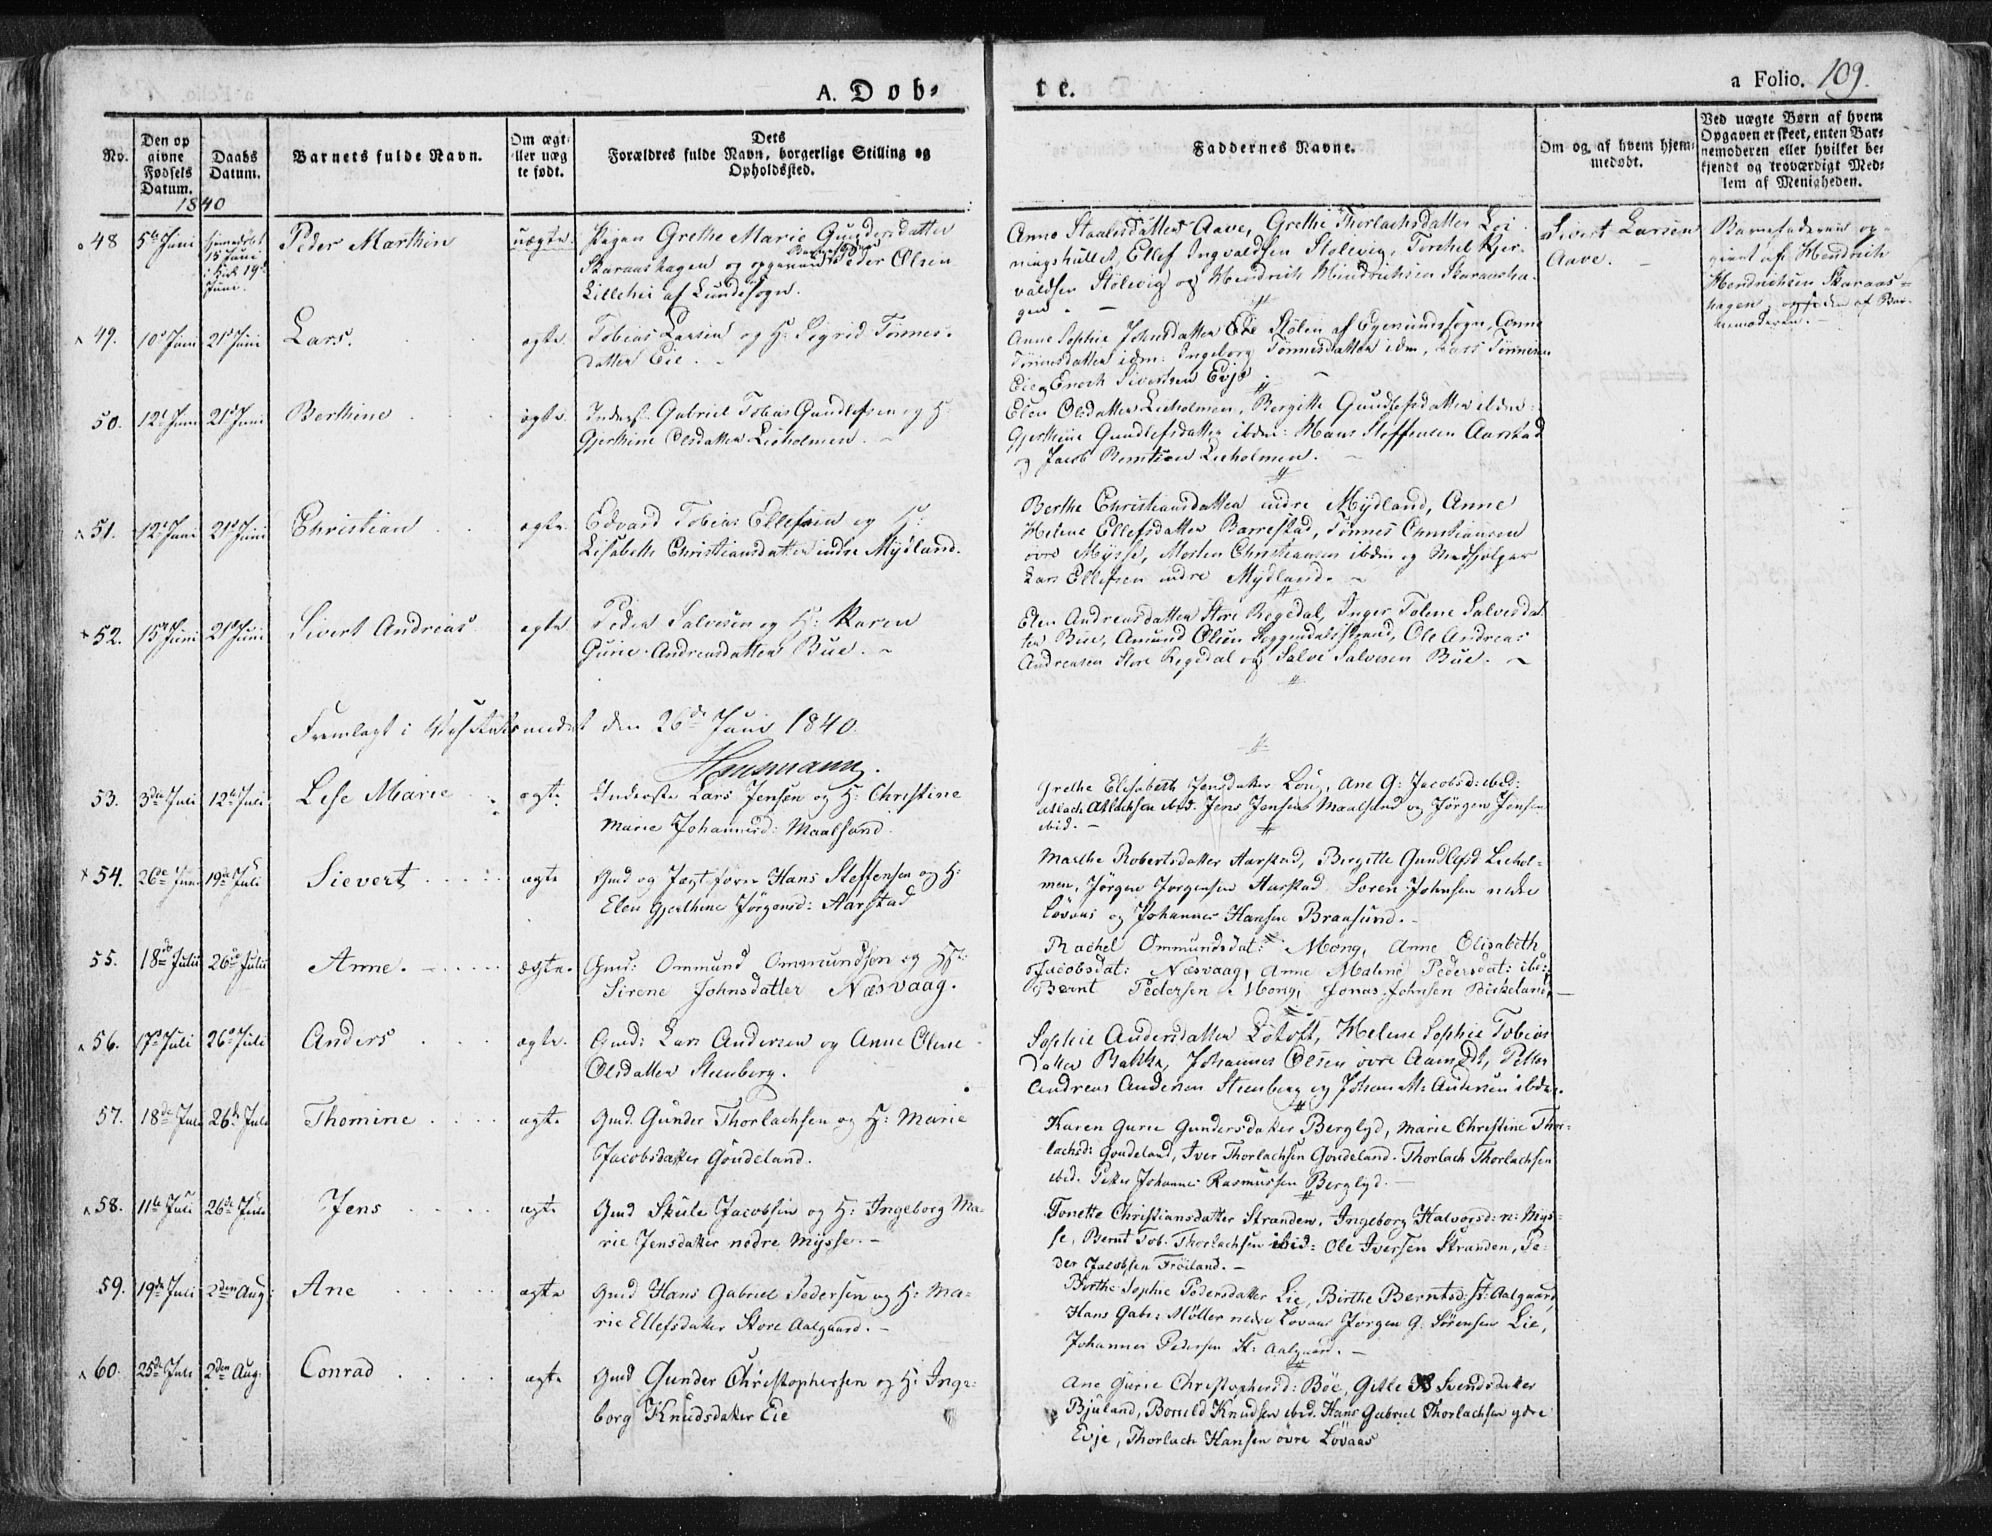 A. Døb-
te.
a Folio. 109.
No.
Den op
givne
Fødsels
Datum.
Daabs
Datum.
1840
Barnets fulde Navn.
Om ægt-
ller uæg
te født.
Dets
Forældres fulde Navn, borgerlige Stilling og
Opholdssted.
Faddernes Navne.
Om og af hvem hjem-
medøbt.
Ved uægte Børn af hvem
Opgaven er skeet, enten Bar-
nemoderen eller hvilket be-
kjendt og troværdigt Med-
lem af Menigheden.
48 5te Juni hjemedøbt
15 Juni
i Kirk 19de
Juni.
Peder Marthin uægte. Pigen Grethe Marie Gundersdatter
Skaraashagen og opgivne Barnefader Peder Olsen
Lillehei af Lundesogn.
Anne Staalesdatter Aave, Grethe Thorlachsdatter Lei
ningshullet, Ellef Ingvaldsen Stolevig, Torchel Kjer
valdsen Stolevig og Hendrich Hendrichsen Skaraasha-
gen.
Sivert Larsen
Aave.
Barnefaderen op-
givet af Hendrich
Hendrichsen Skaraas-
hagen, og siden af Bar-
nemoderen.
49. 10de Juni 21de Juni Lars. ægte. Tobias Larsen og H: Sigrid Tønnes-
datter Eie.
Anne Sophie Johnsdatter Eie Stølen af Egersundsogn, Anne
Tønnesdatter idm: Ingeborg Tønnesdatter idm, Lars Tønnesen
Eie og Enoch Sivertsen Evje.
50. 12te Juni 21de Juni Berthine ægte. Inderst: Gabriel Tobias Gundlefsen og H:
Gjerthine Olsdatter Lieholmen.
Elen Olsdatter Lieholmen, Bergitte Gundlefsdatter ibdm:
Gjerthine Gundlefsdatter ibdm: Hans Steffensen Aarstad
og Jacob Berntsen Lieholmen.
51. 12te Juni 21de Juni Christian ægte. Edvard Tobias Ellefsen og H:
Lisabeth Christiansdatter indre Mydland.
Berthe Christiansdatter indre Mydland, Anne
Helene Ellefsdatter Barrestad, Tønnes Christiansen
øvre Mysse, Morten Christiansen ibdm og Medhjelper
Lars Ellefsen indre Mydland.
52. 15de Juni 21de Juni Sivert Andreas ægte. Peder Salvesen og H: Karen
Gurie Andreasdatter Bue.
Elen Andreasdatter Store Regedal, Inger Tolene Salvesdat
ter Bue, Amund Olsen Seggendalsstrand, Ole Andreas
Andreasen Store Regedal og Salve Salvesen Bue.
Fremlagt i den 26de Juni 1840.
53. 3de Juli 12te Juli Lise Marie ægte. Inderste Lars Jensen og H: Christine
Marie Johannesd: Maalsand.
Grethe Elisabeth Jensdatter Løvg, Ane G: Jacobsd: ibid:
Atlach Atlachsen ibid. Jens Jensen Maalsand og Jørgen Jensen
ibid.
54. 26de Juni 19de Juli Sievert ægte Gmd og Jægt-fører Hans Steffensen og H:
Elen Gjerthine Jørgensd: Aarstad
Marthe Robertsdatter Aarstad, Birgitte Gundlefsd Liehol-
men, Jørgen Jørgensen Aarstad Søren Johnsen nedre
Løvaas og Johannes Hansen Braasund.
55. 18de Julii 26de Julii Anne. ægte. Gmd: Ommund Ommundsen og H:
Sirene Johnsdatter Næsvaag.
Rachel Ommundsdat: Mong, Anne Elisabeth
Jacobsdat: Næsvaag, Anne Malene Pedersdat: ibid:
Bernt Pedersen Mong, Jonas Johnsen Birkeland.
56. 17de Juli 26de Juli Anders ægte. Gmd: Lars Andersen og Anne Olene
Olsdatter Steenberg.
Sophie Andersdatter Løtoft, Helene Sophie Tobias
datter Bakke, Johannes Olsen øvre Aamodt, Petter
Andreas Andersen Steenberg og Johan M: Andersen ibdm.
57. 18de Juli 26de Juli Thomine ægte Gmd. Gunder Thorlachsen og H: Marie
Jacobsdatter Goudeland.
Karen Gurie Gundersdatter Berglyd, Marie Christine Thor-
lachsd: Goudeland, Iver Thorlachsen Goudeland. Thorlach Thorlachsen
ibid. Petter Johannes Rasmussen Berglyd.
58. 11te Juli 26de Juli Jens ægte Gmd Skule Jacobsen og H: Ingeborg Ma-
rie Jensdatter nedre Mysse.
Tonette Christiansdatter Stranden, Ingeborg Halvorsd: n: Mys-
se, Bernt Tob. Thorlachsen ibid: Ole Iversen Stranden, Pe-
der Jacobsen Frøiland.
59. 19de Juli 2den Aug: Ane ægte Gmd Hans Gabriel Pedersen og H: Ma-
rie Ellefsdatter Store Aalgaard.
Birthe Sophie Pedersdatter Lie, Birthe Berntsd: St: Aalgaard,
Hans Gabr: Møller nedre Løvaas Jørgen G: Sørensen Lie,
Johannes Pedersen St: Aalgaard.
60. 25de Juli 2den Aug. Conrad ægte Gmd Gunder Christophersen og H: Inge-
borg Knudsdatter Eie
Ane Gurie Christophersd: Bøe, Gitle Svendsdatter
Bjuland, Boruld Knudsen ibid. Hans Gabriel Thorlachsen ydre
Evje, Thorlach Hansen øvre Løvaas